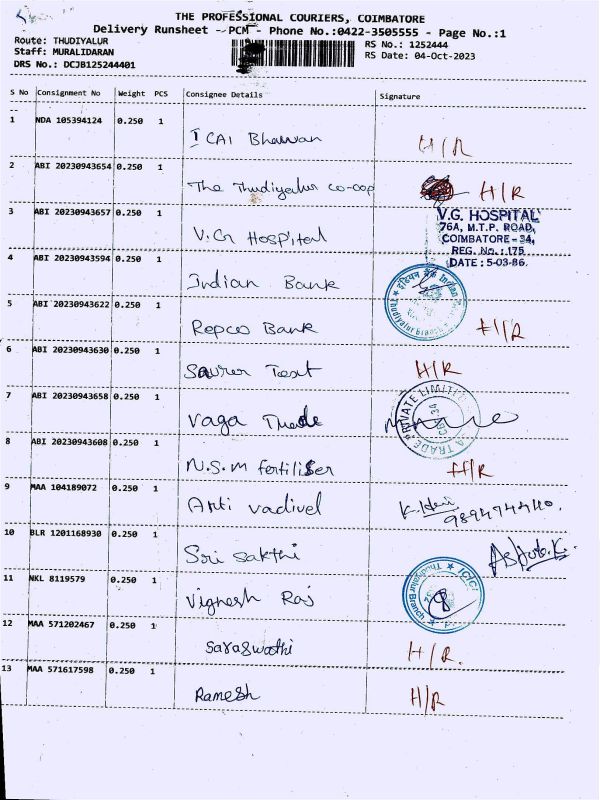 THE PROFESSIONAL COURIERS, COIMBATORE
Delivery Runsheet - PCM - Phone No.:0422-3505555 - Page No.:1
Route: THUDIYALUR
RS No.: 1252444
Staff: MURALIDARAN
RS Date: 04-Oct-2023
DRS No.: DCJB125244401
S No Consignment No Weight PCS Consignee Details Signature
1 NDA 105394124 0.250 1
ICAI Bhawan H/R
2 ABI 20230943654 0.250 1
The Thudiyalur co-op H/R
3 ABI 20230943657 0.250 1
V.G Hospital
V.G. HOSPITAL
76A, M.T.P. ROAD,
COIMBATORE - 34,
REG. No.: 175
DATE: 5-03-86.
4 ABI 20230943594 0.250 1
Indian Bank
Indian
Thudiyalur Branch
5 ABI 20230943622 0.250 1
Repco Bank H/R
6 ABI 20230943630 0.250 1
Saurer Text H/R
7 ABI 20230943658 0.250 1
Vaga Trade
TRADE PRIVATE LIMITED
8 ABI 20230943608 0.250 1
N.S.M fertiliser H/R
9 MAA 104189072 0.250 1
Anti vadivel
10 BLR 1201168930 0.250 1
Sri Sakthi
11 NKL 8119579 0.250 1
Vignesh Raj
ICICI
Thudiyalur Branch
12 MAA 571202467 0.250 1
Saraswathi H/R.
13 MAA 571617598 0.250 1
Ramesh H/R